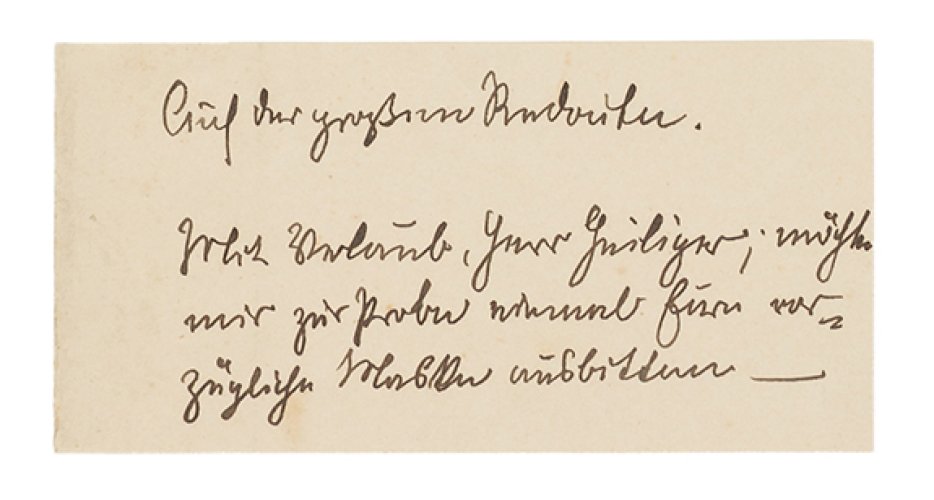 Auf der großen Redoute.
Mit Verlaub, Herr Heiliger, möchte
mir zur Probe einmal Eure vor-
zügliche Maske ausbitten —